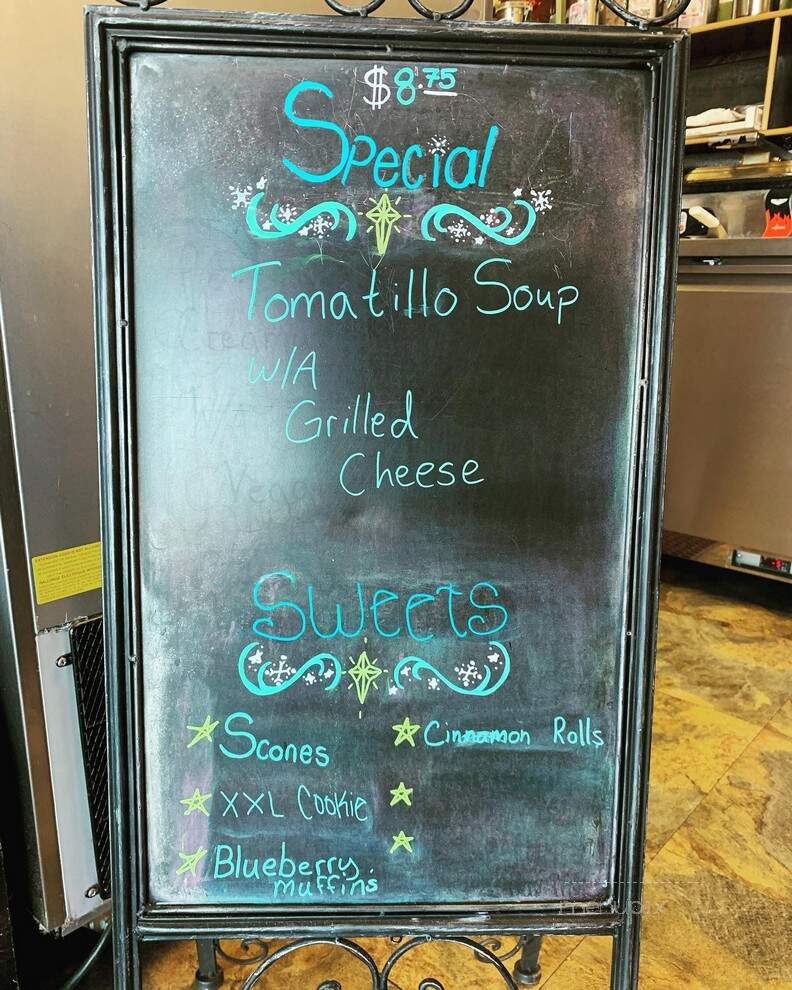 $8.75
Special
Tomatillo Soup
W/A
Grilled
Cheese
Sweets
Scones
Cinnamon Rolls
XXL Cookie
Blueberry
muffins